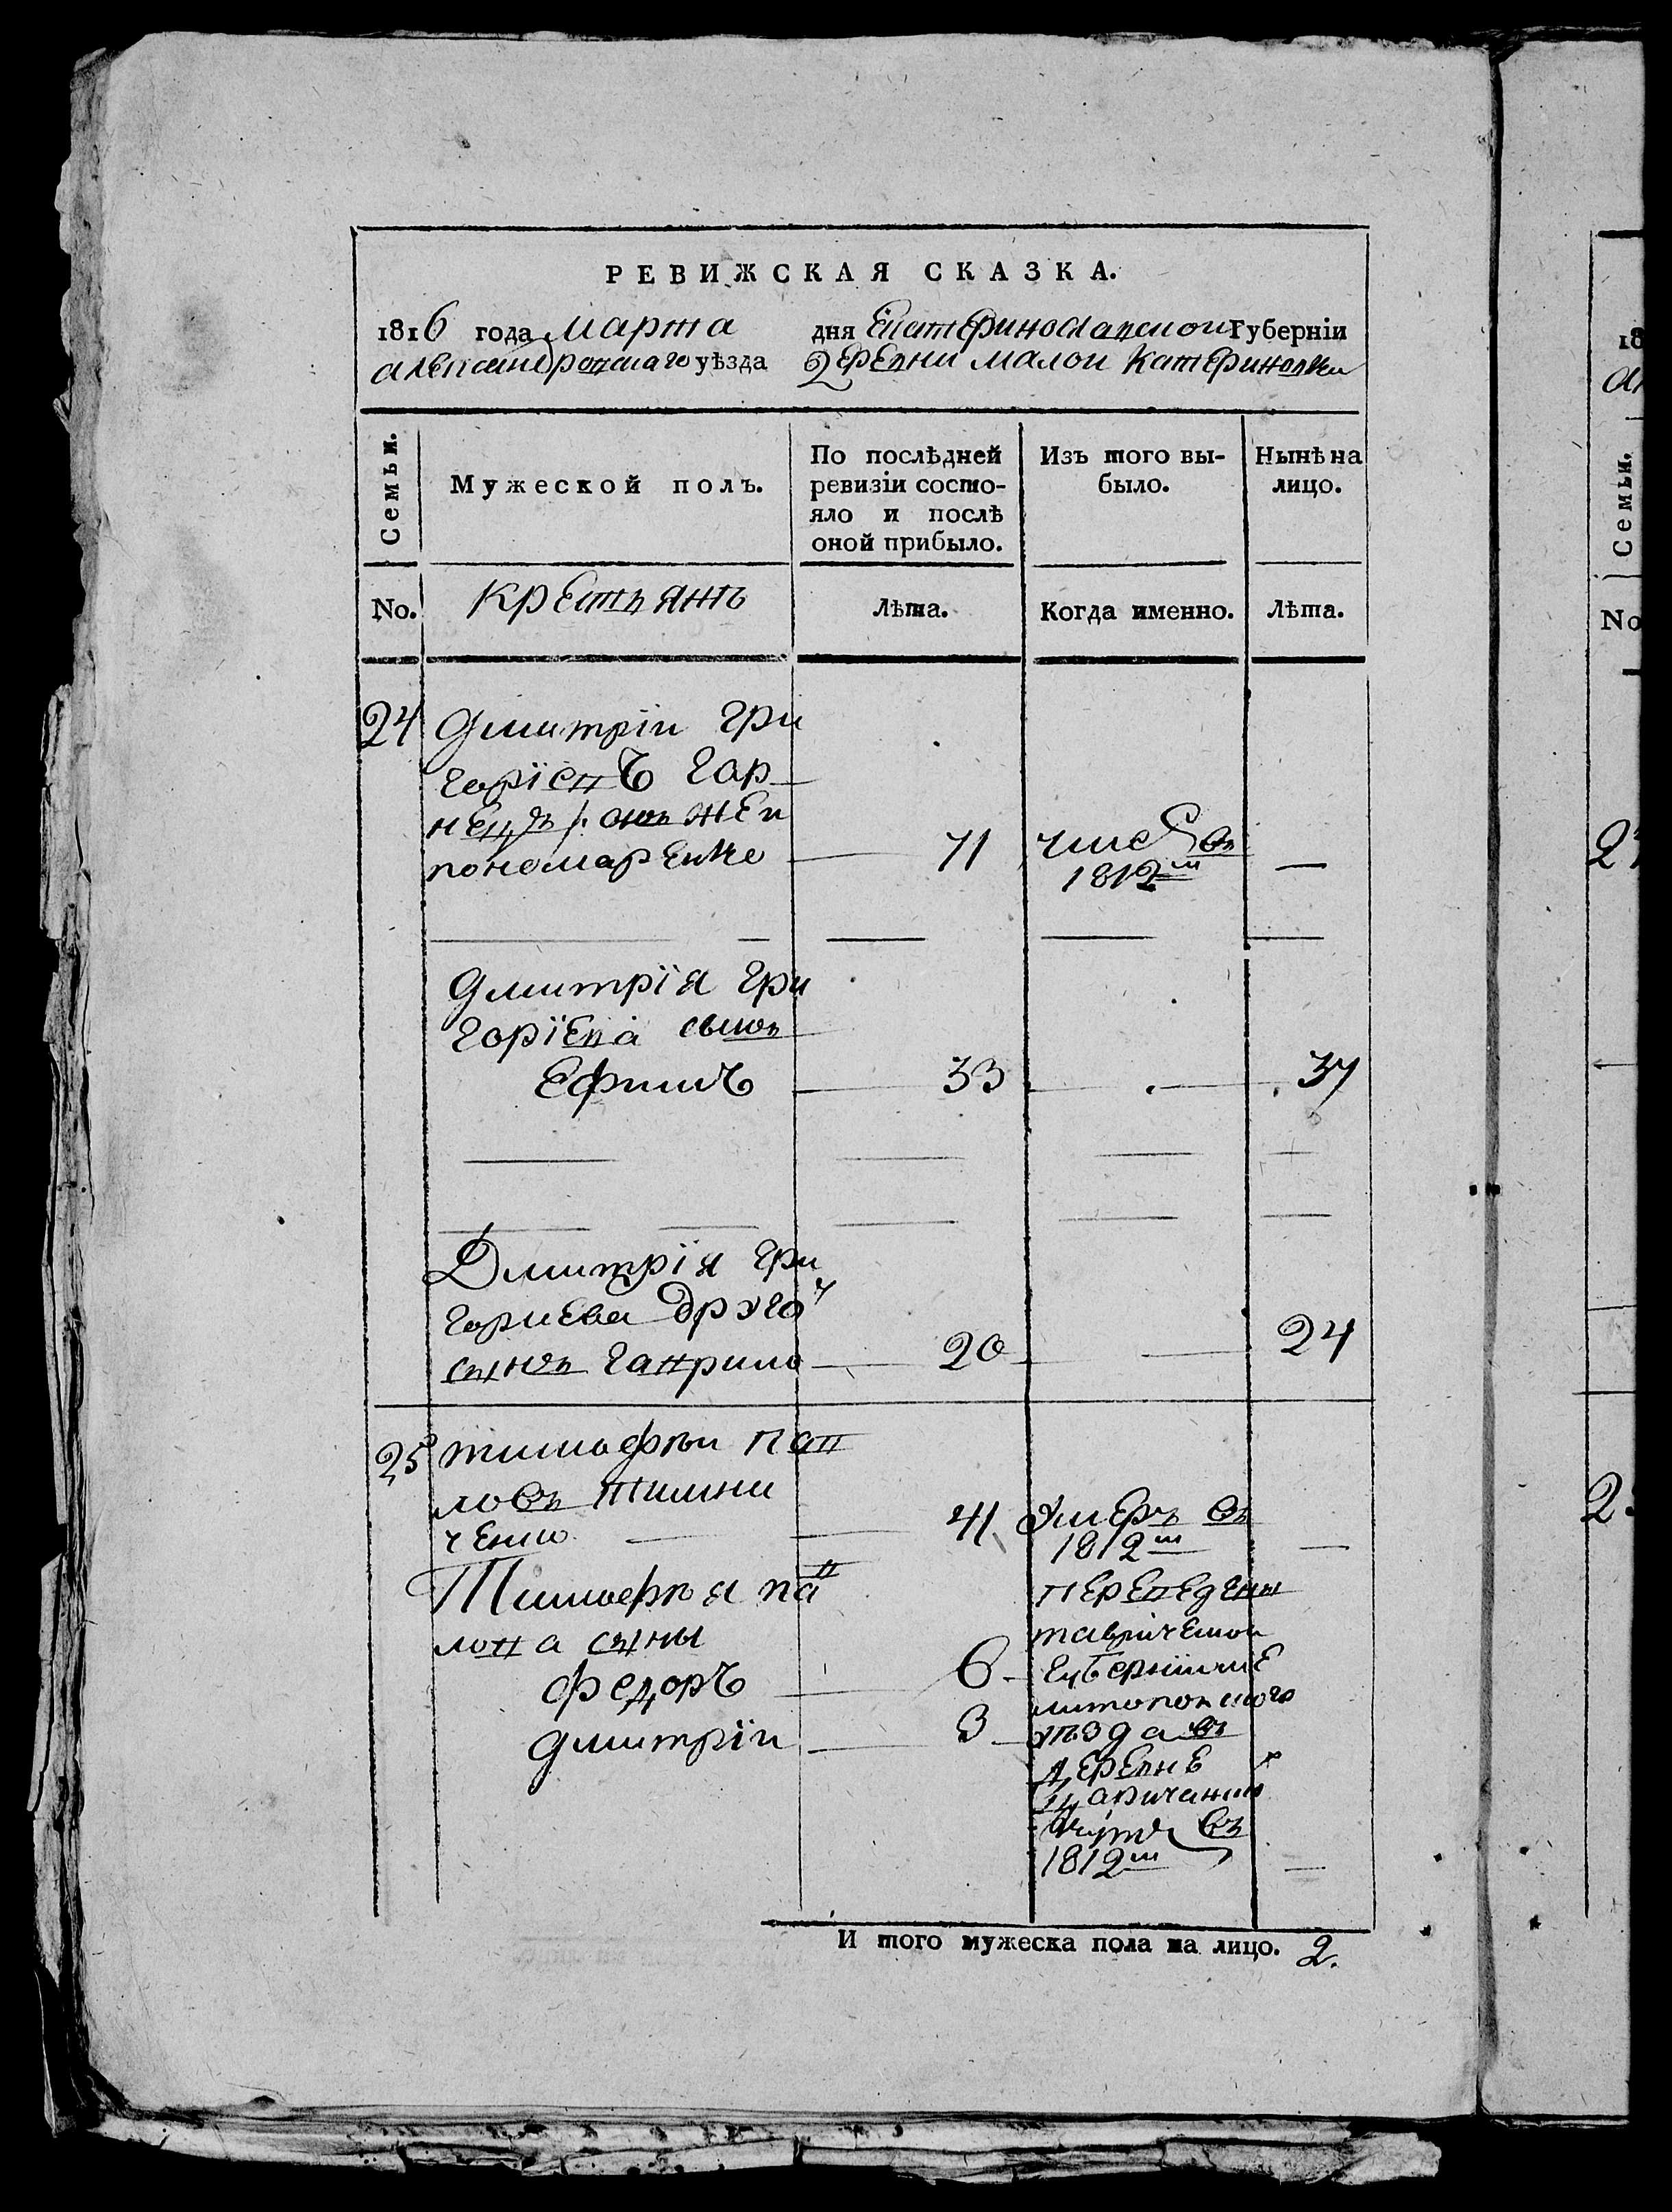 РЕВИЖСКАЯ СКАЗКА.
1816 года Марта дня Екатеринославской Губерніи
александровскаго уѣзда деревни малой Катериновки
Семьи.
Мужеской полъ.
По послѣдней ревизіи состо-
яло и послѣ
оной прибыло.
Изъ того вы-
было.
Нынѣ на
лицо.
No.
крестьянъ
Лѣта.
Когда именно.
Лѣта.
24 Дмитрій Гри
горіевъ Гор
нецъ онъ же и
пономаренко 71
1812м —
Дмитрія Гри
горіева сынъ
Ефимъ 33 37
Дмитрія Гри
гориева другой
сынъ гаврило 20 24
25 тимофѣи пав
ловъ Тимни
ченко 41 умеръ въ
1812м —
Тимофѣя пав
лова сыны
федоръ 6
дмитрїи 3
переведены
таврической
губерніи ме
литополскаго
уѣзда въ
деревнѣ
въ
1812м —
И того мужеска пола на лицо. 2.
18
Семьи.
No